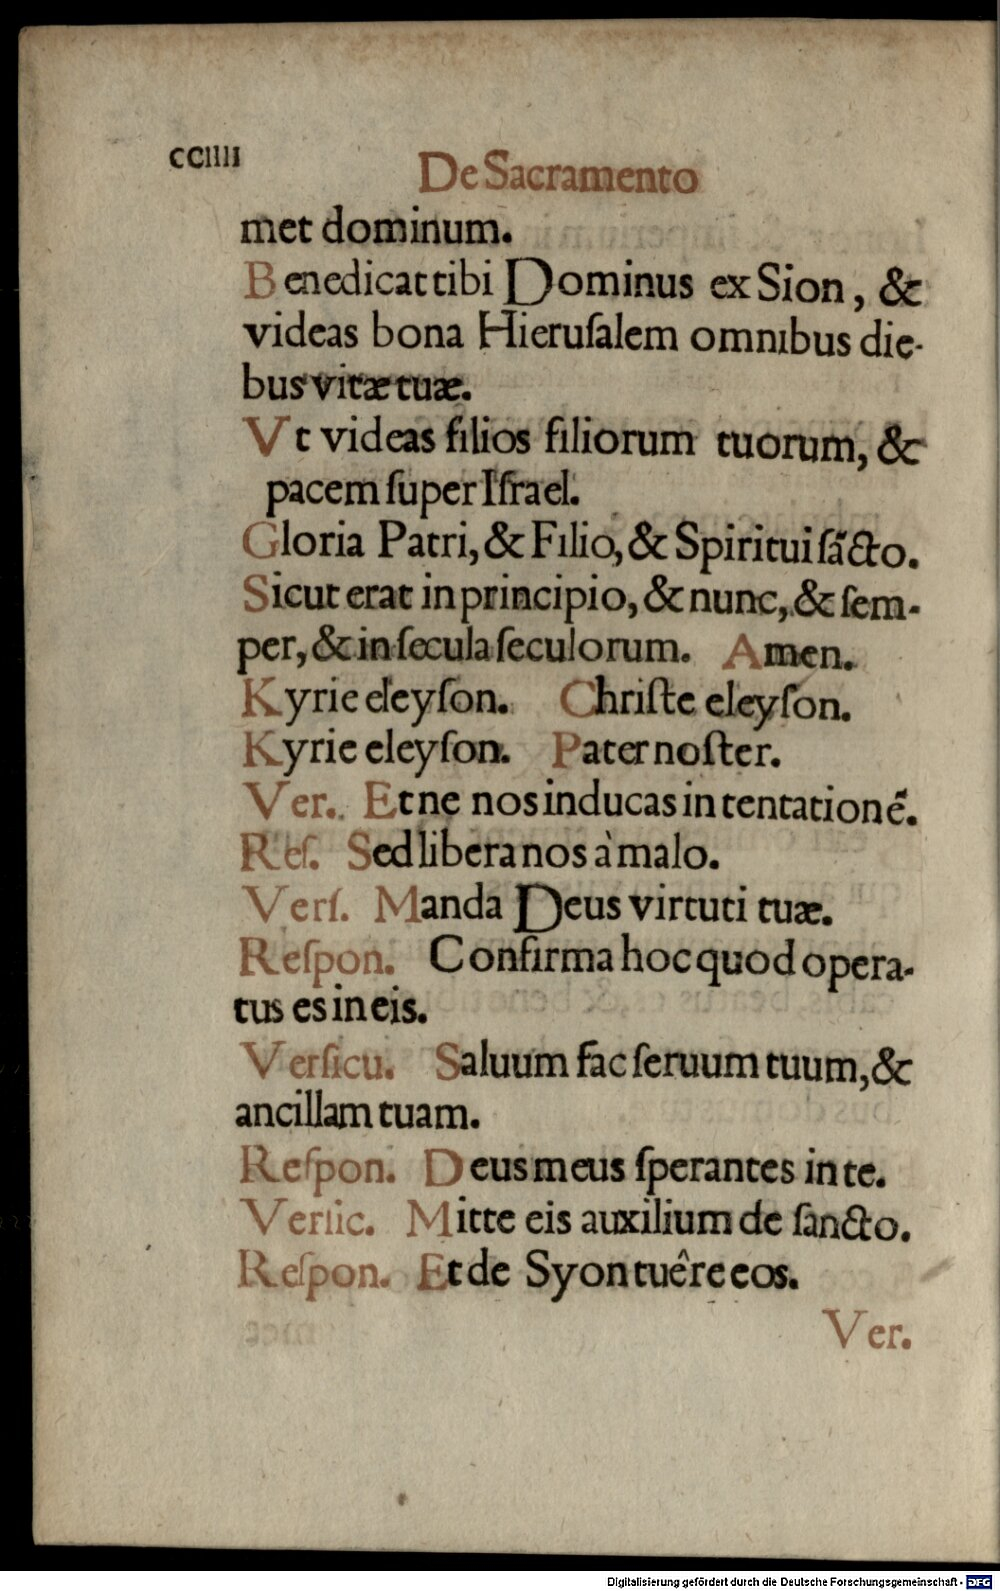 CCIIII
De Sacramento
met dominum.
Benedicat tibi Dominus ex Sion, &
videas bona Hieruſalem omnibus die-
bus vitæ tuæ.
Vt videas filios filiorum tuorum, &
pacem ſuper Iſrael.
Gloria Patri, & Filio, & Spiritui ſãcto.
Sicut erat in principio, & nunc, & ſem-
per, & in ſecula ſeculorum. Amen.
Kyrie eleyſon. Chriſte eleyſon.
Kyrie eleyſon. Pater noſter.
Ver. Et ne nos inducas in tentationẽ.
Reſ. Sed libera nos à malo.
Verſ. Manda Deus virtuti tuæ.
Reſpon. Confirma hoc quod opera-
tus es in eis.
Verſicu. Saluum fac ſeruum tuum, &
ancillam tuam.
Reſpon. Deus meus ſperantes in te.
Verſic. Mitte eis auxilium de ſancto.
Reſpon. Et de Syon tuêre eos.
Ver.
Digitalisierung gefördert durch die Deutsche Forschungsgemeinschaft - DFG